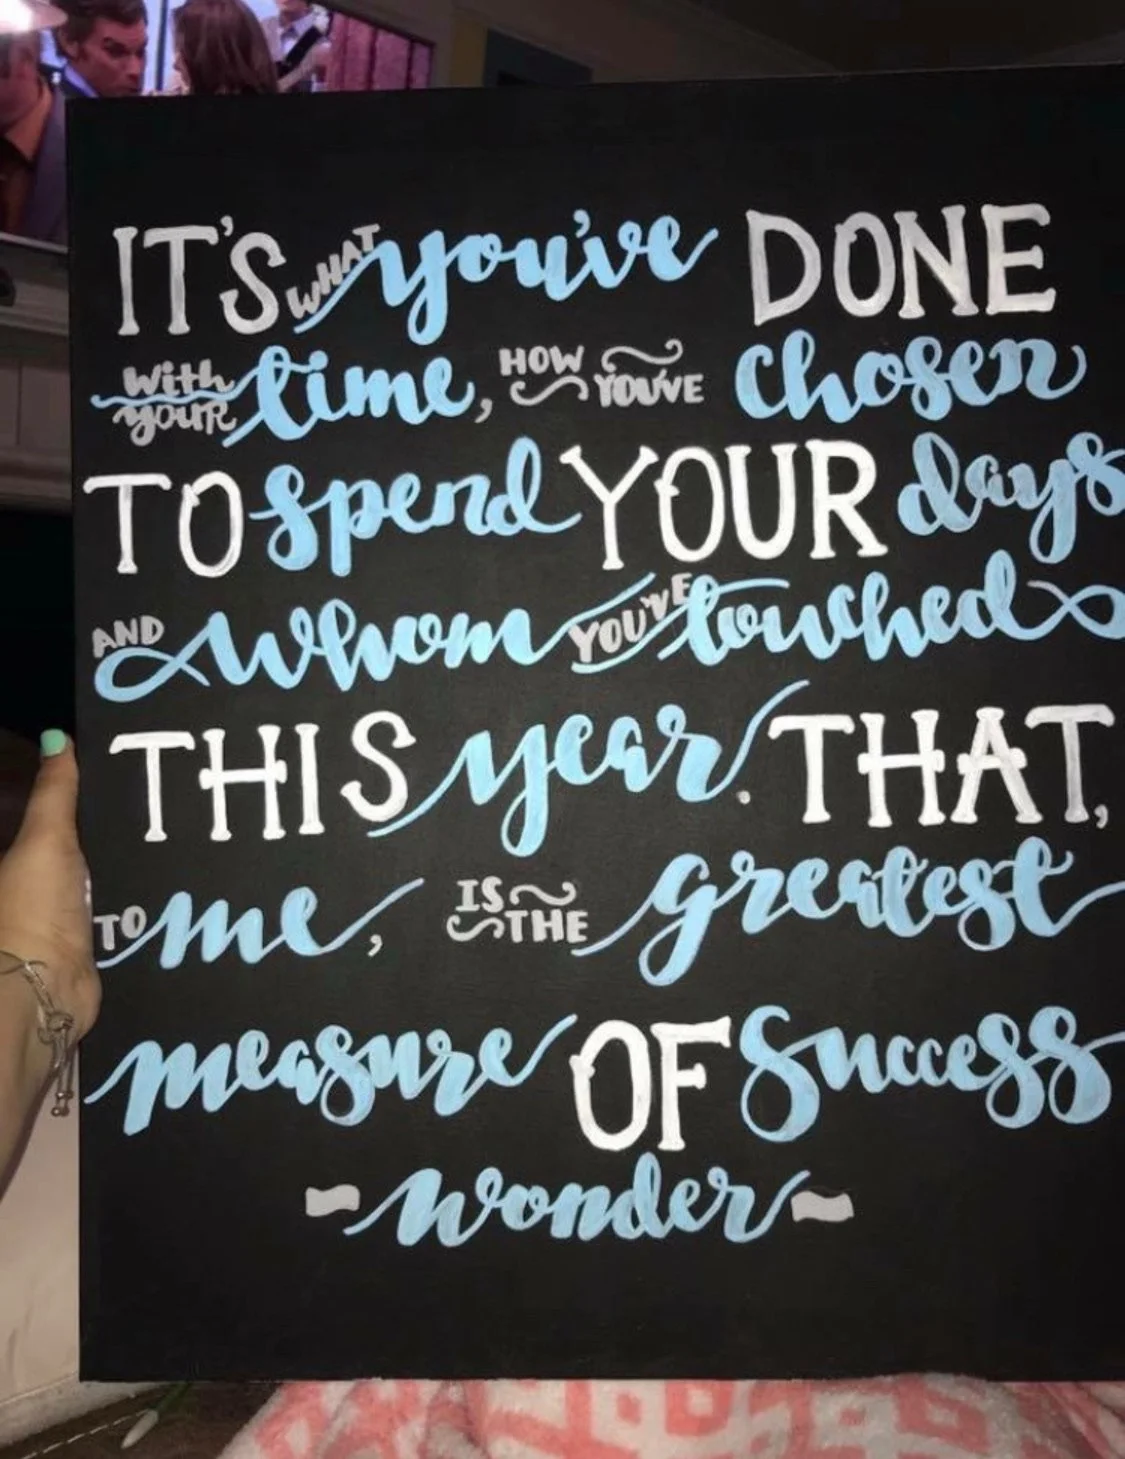 IT'S WHAT you've DONE
with your time, HOW YOU'VE chosen
TO spend YOUR days
AND whom YOU'VE touched
THIS year. THAT,
TO me, IS THE greatest
measure OF Success
-wonder-